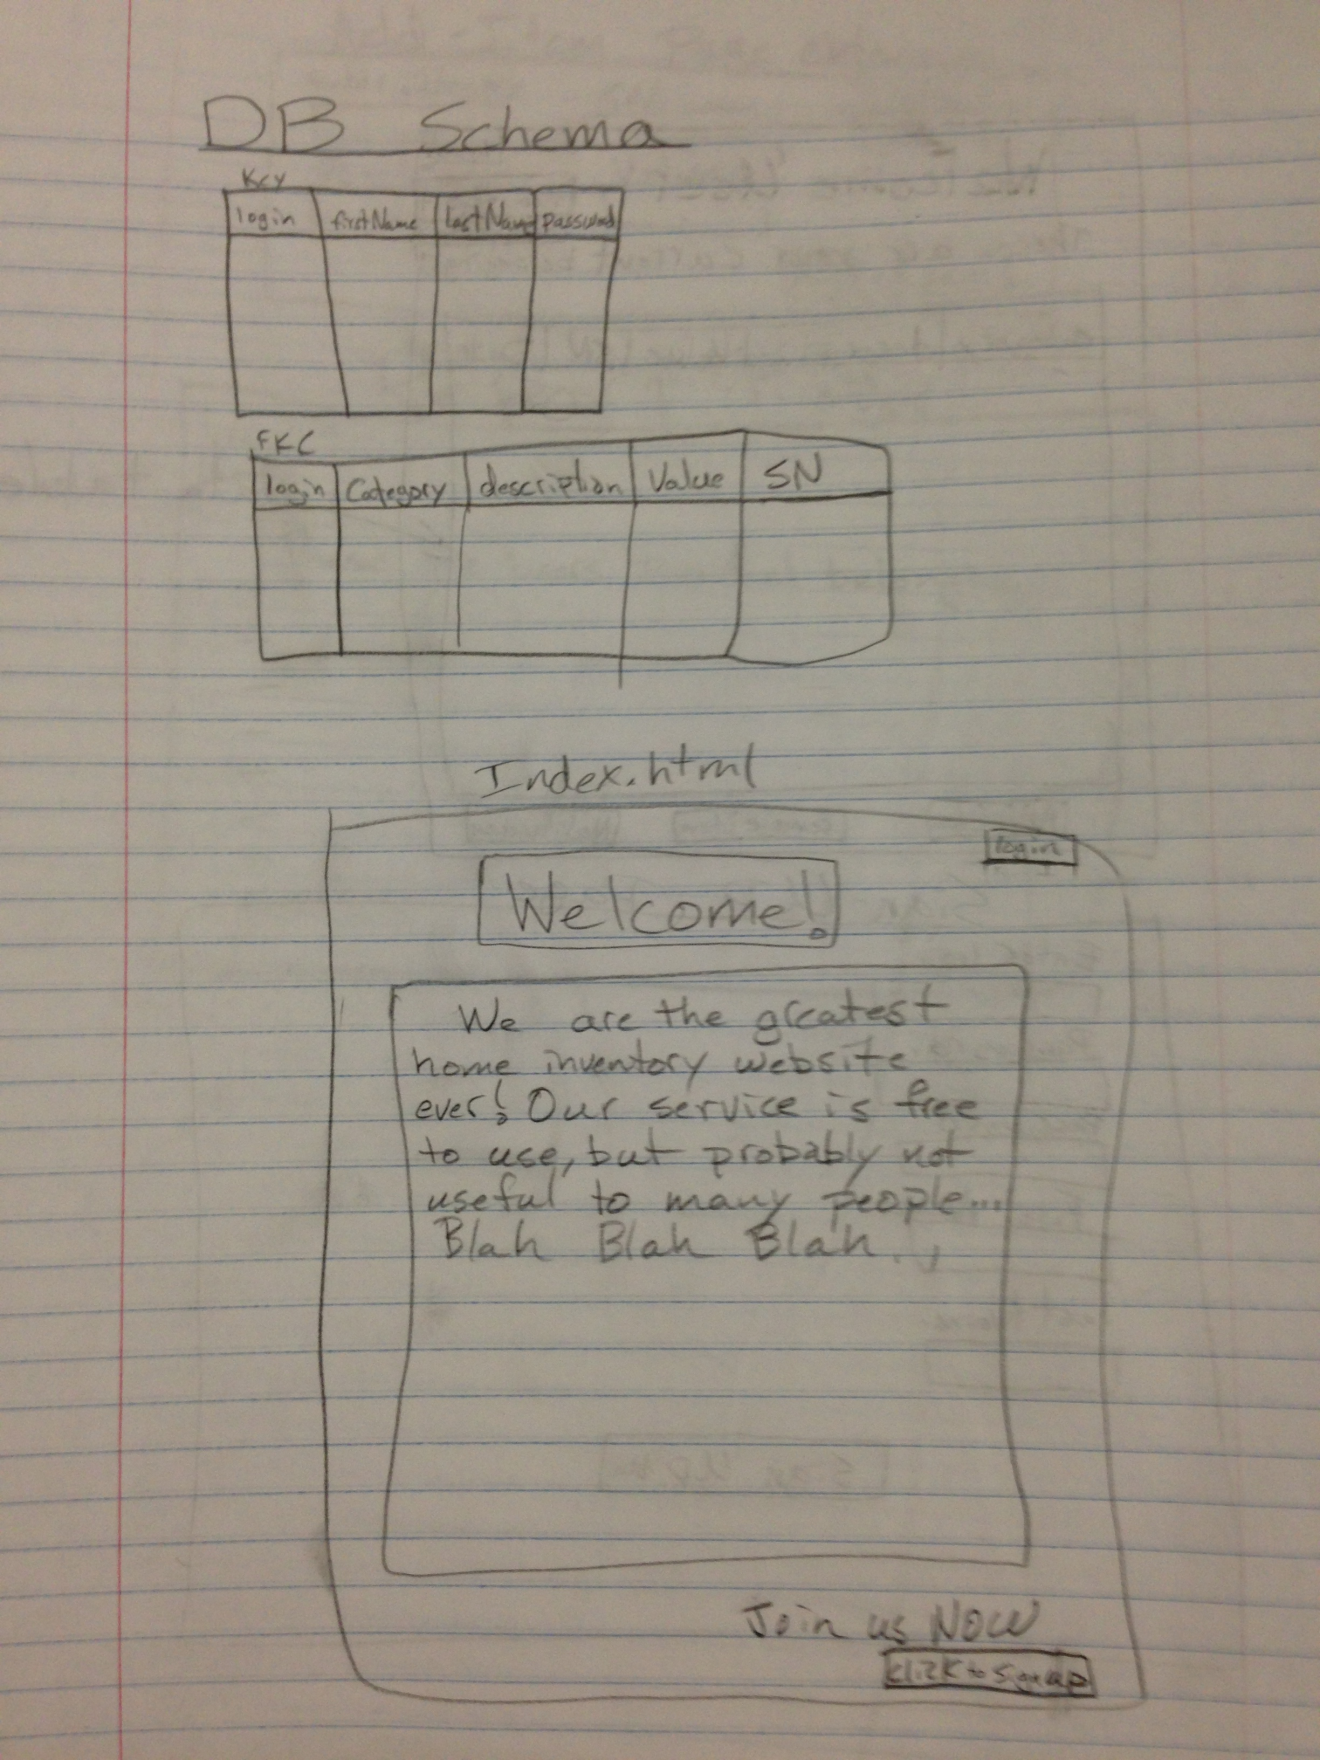 DB Schema
Key
login firstName lastName password
FKC
login Category description Value SN
Index.html
login
Welcome!
We are the greatest
home inventory website
ever! Our service is free
to use, but probably not
useful to many people...
Blah Blah Blah..,
Join us NOW
click to sign up